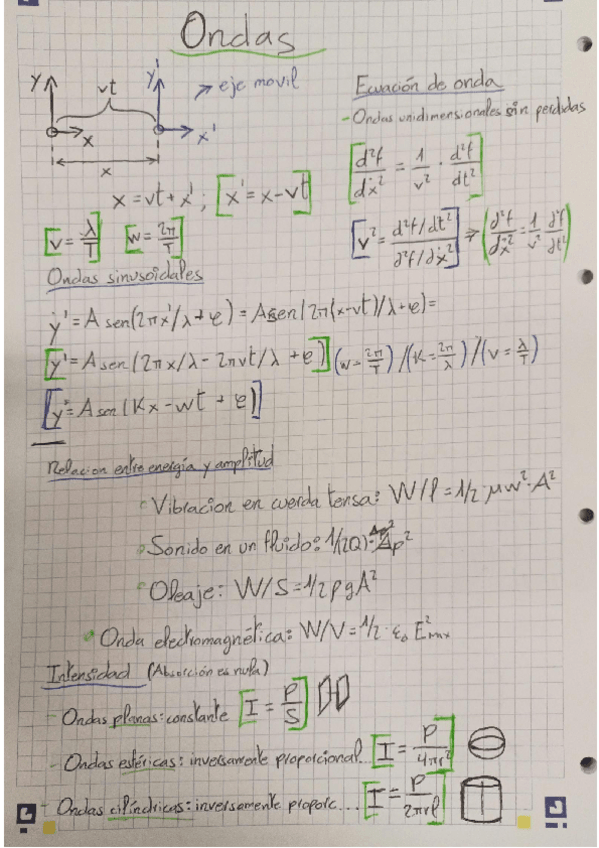 Ondas
y vt y' → eje movil
x x'
x
x = vt + x' ; [x' = x - vt]
[v = λ/T] [w = 2π/T]
Ecuación de onda
- Ondas unidimensionales sin perdidas
[d²f/dx² = 1/v² · d²f/dt²]
[v² = d²f/dt² / d²f/dx²] ⇒ (d²f/dx² = 1/v² d²f/dt²)
Ondas sinusoidales
y' = A sen(2πx'/λ + φ) = A sen(2π(x - vt)/λ + φ) =
[y' = A sen(2πx/λ - 2πvt/λ + φ)] (w = 2π/T)/(K = 2π/λ)/(v = λ/T)
[y' = A sen(Kx - wt + φ)]
Relacion entre energía y amplitud
Vibracion en cuerda tensa: W/l = 1/2 · μw² · A²
Sonido en un fluido: 1/(2Q) · Δp²
Oleaje: W/S = 1/2 ρgA²
Onda electromagnética: W/V = 1/2 · ε₀ E²max
Intensidad (Absorción es nula)
- Ondas planas: constante [I = P/S]
- Ondas esféricas: inversamente proporcional... [I = P/4πr²]
- Ondas cilíndricas: inversamente proporc... [I = P/2πrl]